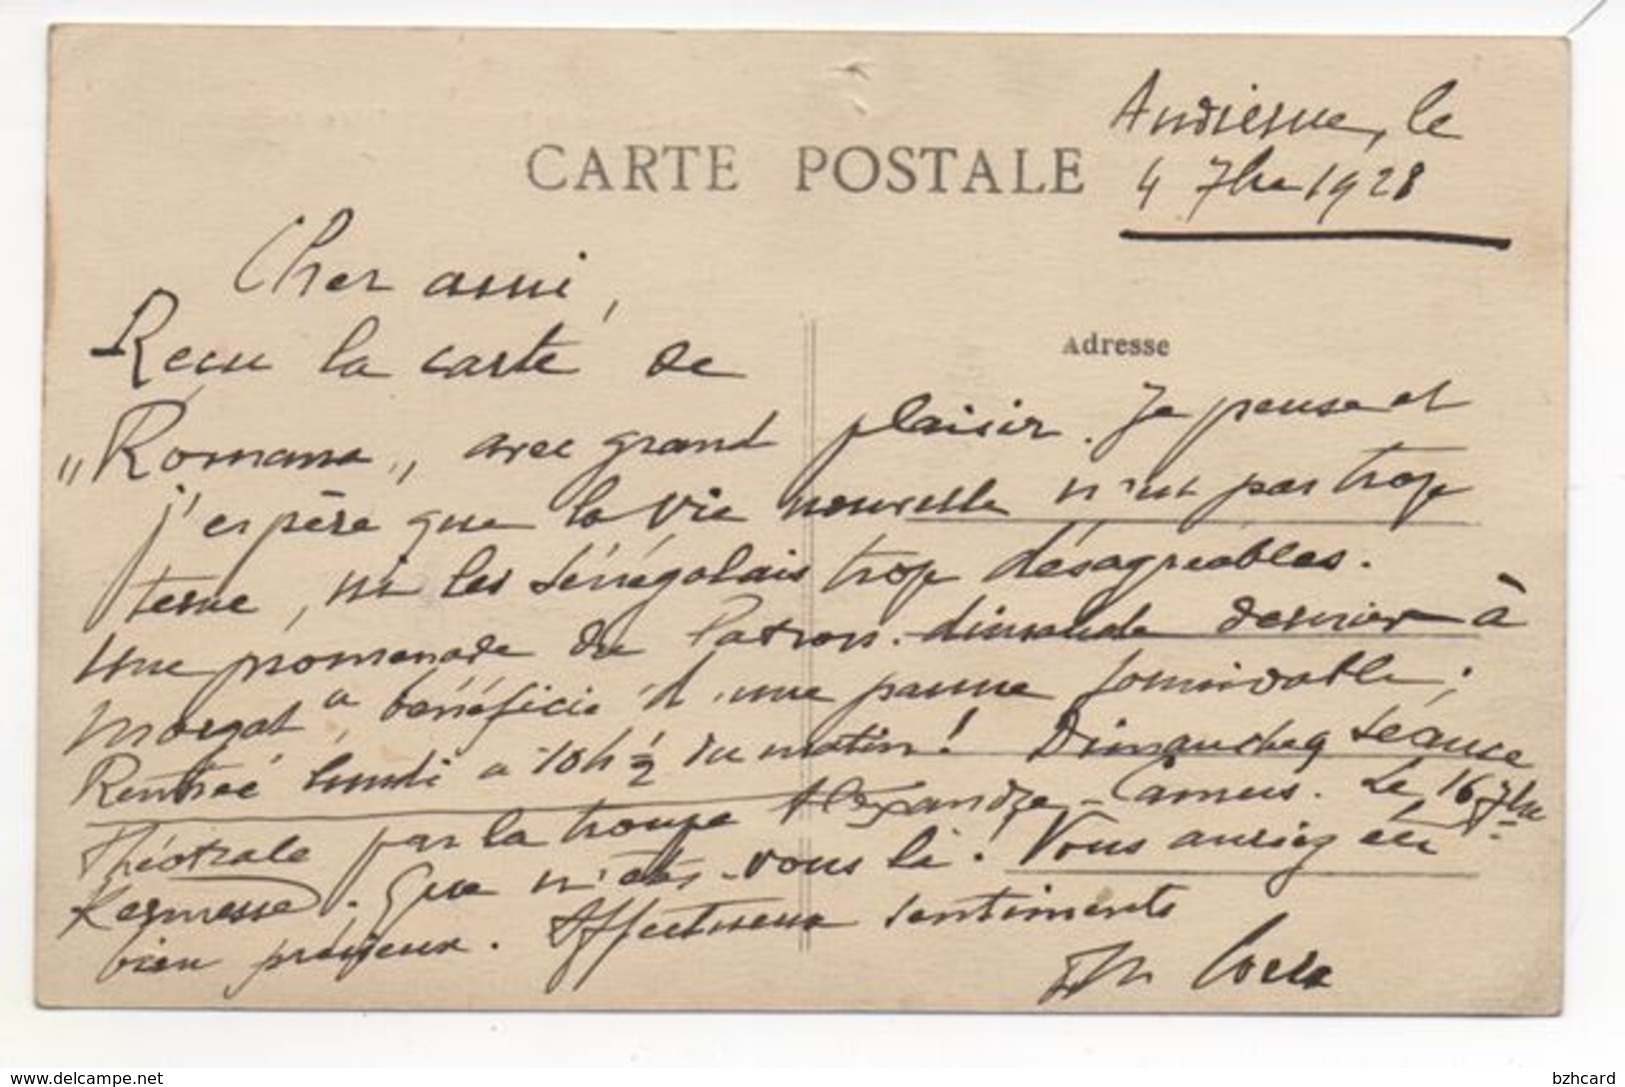 Audierne, le
CARTE POSTALE
4 7bre 1928
Cher ami,
Reçu la carte de
Adresse
"Romans" avec grand plaisir. Je pense et
j'espère que la vie nouvelle n'est pas trop
terne, ni les Sénégalais trop désagréables.
Une promenade du Patron dimanche dernier à
Morgat a bénéficié d'une panne formidable;
Rentrée lundi à 10h ½ du matin! Dimanche 9 séance
théâtrale par la troupe Alexandre-Camus. Le 16 7bre
Kermesse. Que n'êtes-vous là! Vous auriez été
bien précieux. Affectueux sentiments
www.delcampe.net
bzhcard